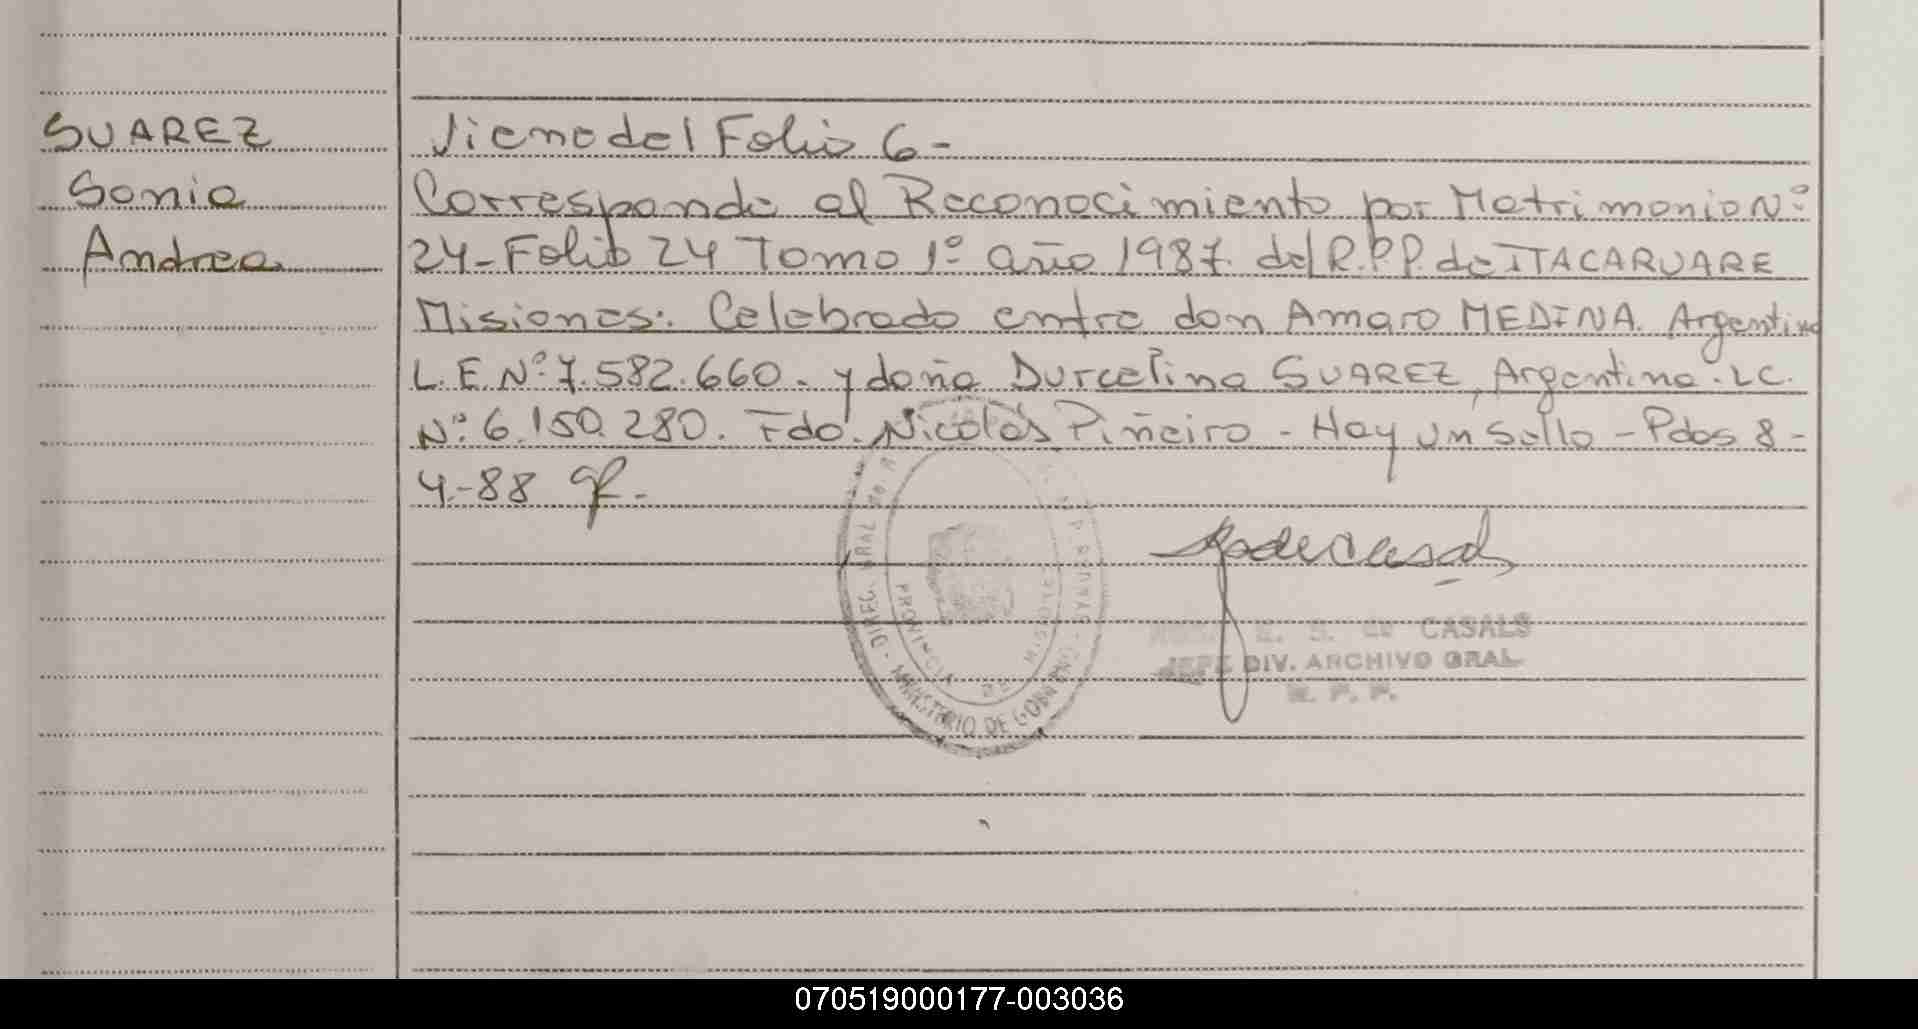 SUAREZ
Sonia
Andrea
Viene del Folio 6-
Corresponde al Reconocimiento por Matrimonio Nº
24- Folio 24 Tomo 1º año 1987. del R.P.P. de ITACARUARE
Misiones: Celebrado entre don Amaro MEDINA. Argentino
L.E. Nº 7.582.660. y doña Durcelina SUAREZ, Argentina. LC.
Nº 6.150.280. Fdo. Nicolás Piñeiro - Hay un Sello - Pdas 8-
4-88
DIREC. GRAL
PERSONAS - MINISTERIO DE GOBIERNO
PROVINCIA DE MISIONES
E. S. de CASALS
JEFE DIV. ARCHIVO GRAL
R. P. P.
070519000177-003036